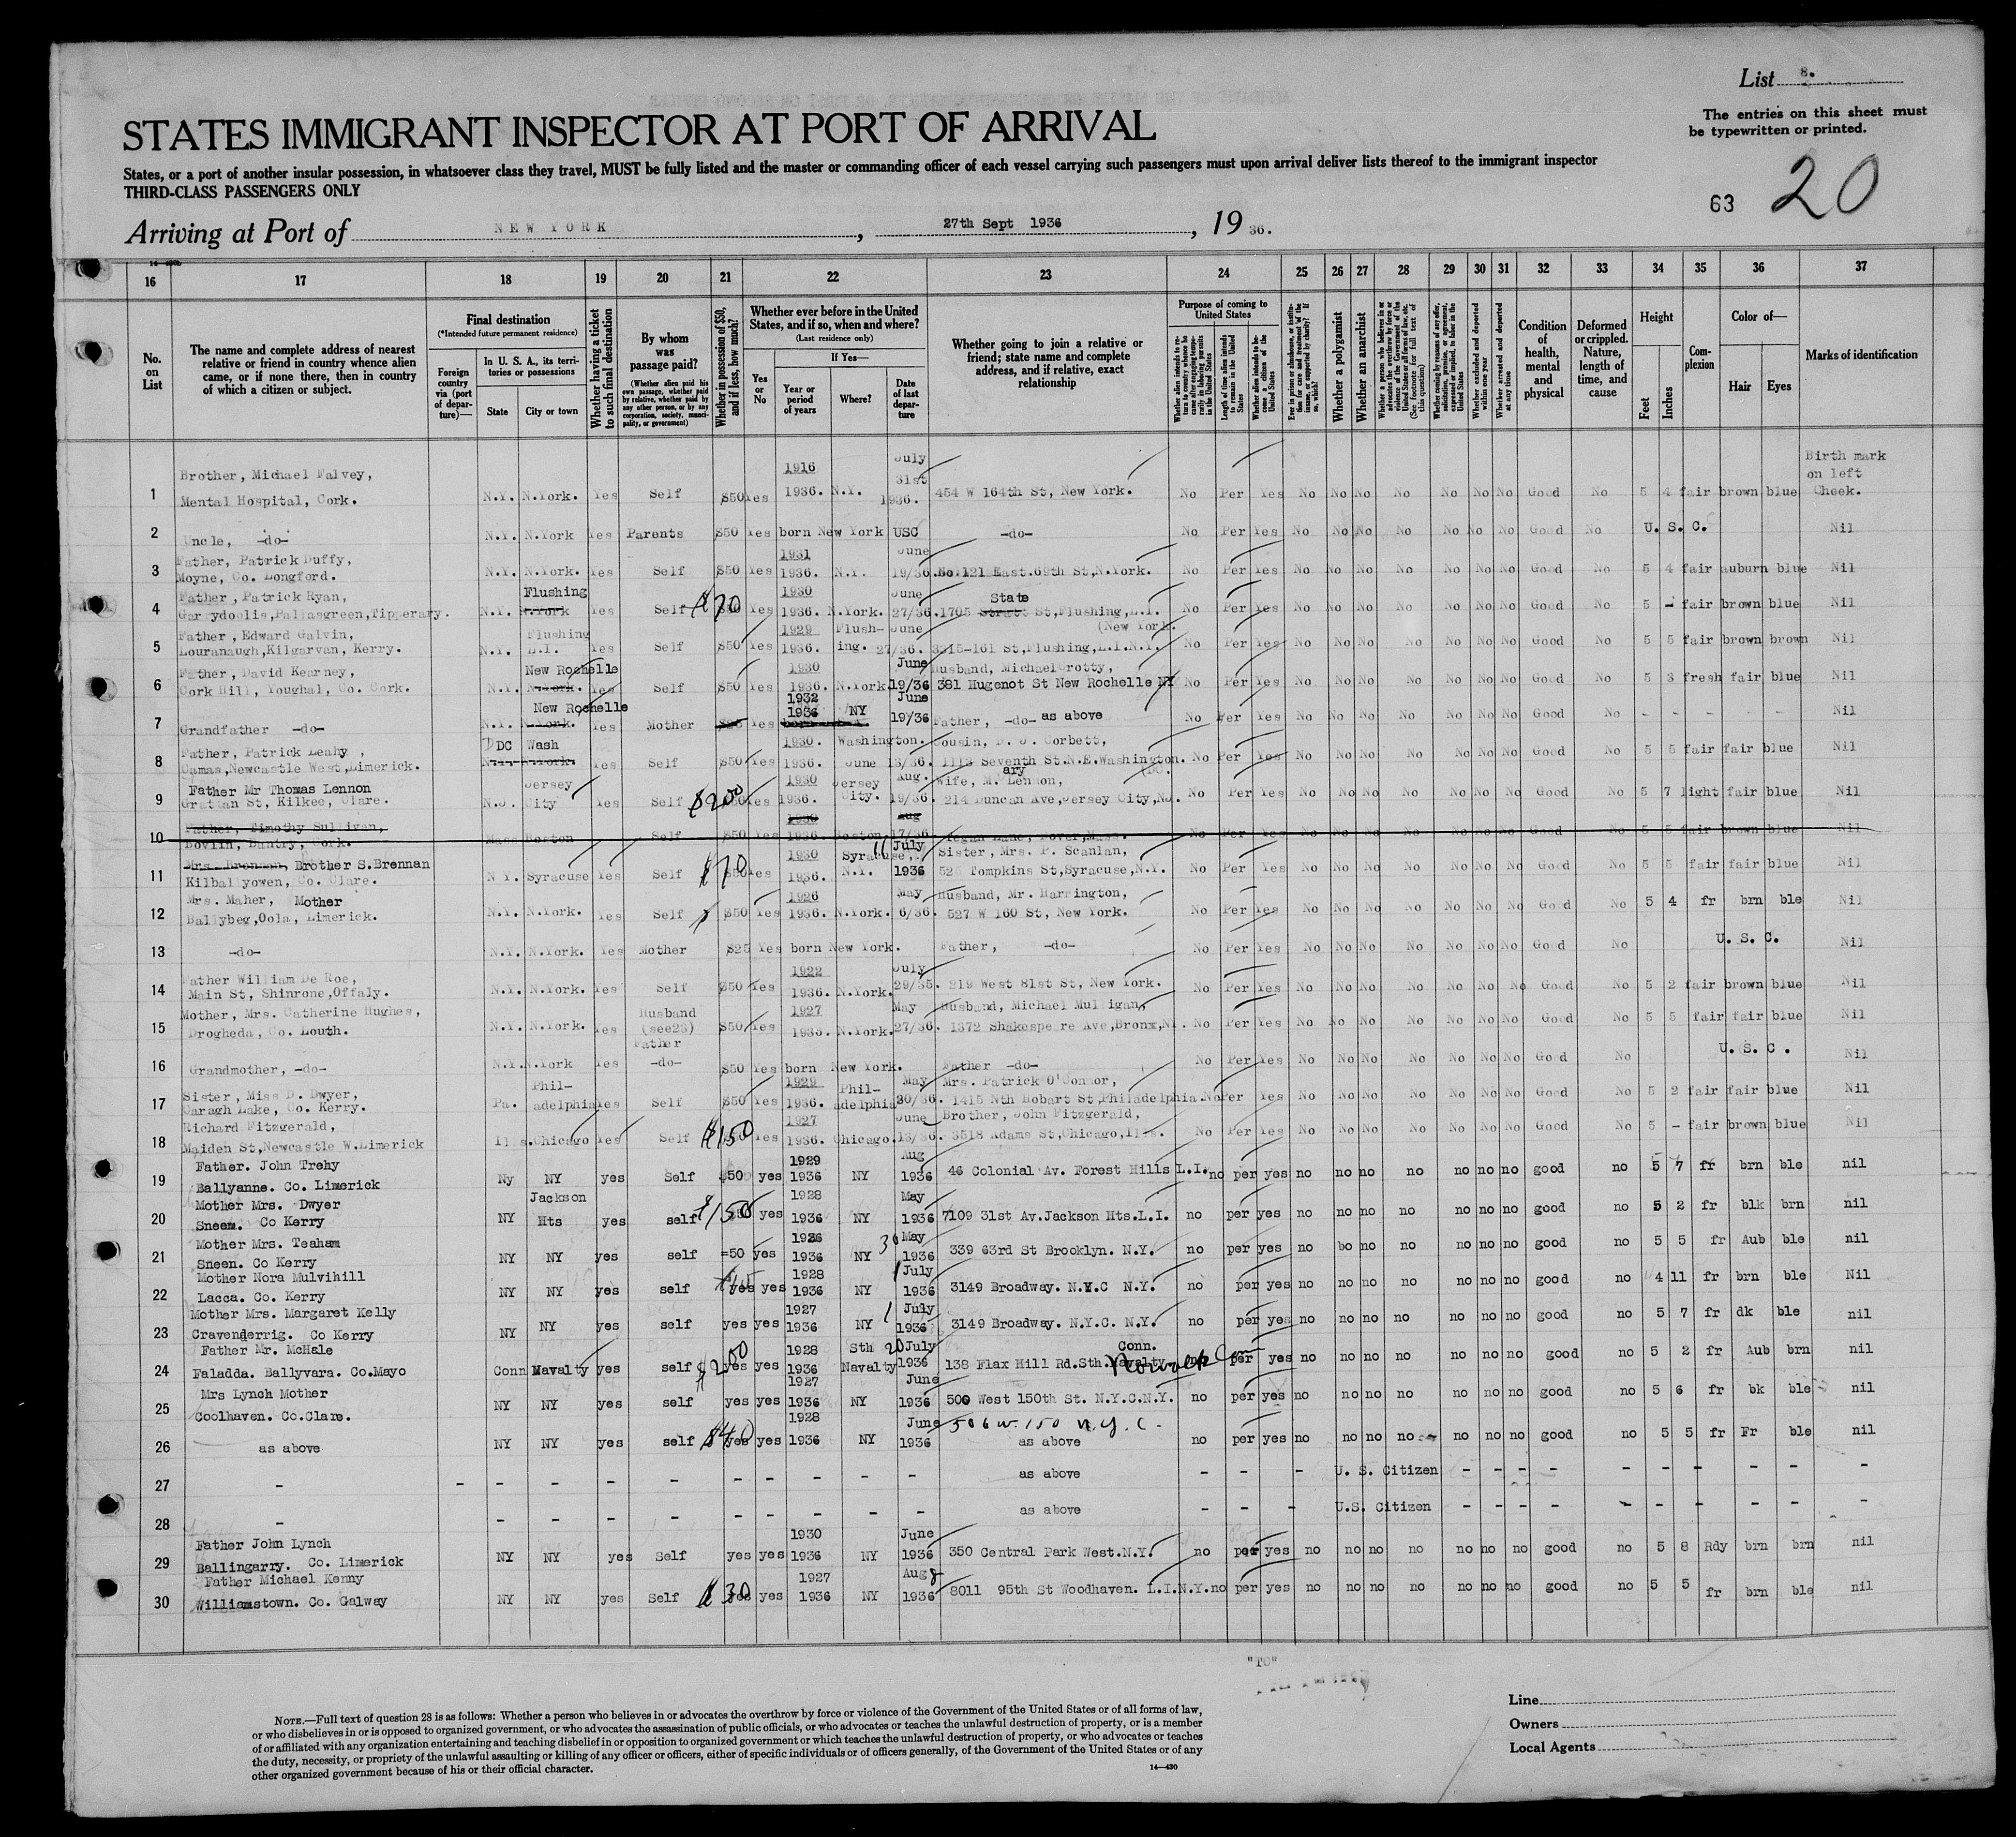 List 8.
The entries on this sheet must
be typewritten or printed.
STATES IMMIGRANT INSPECTOR AT PORT OF ARRIVAL
States, or a port of another insular possession, in whatsoever class they travel, MUST be fully listed and the master or commanding officer of each vessel carrying such passengers must upon arrival deliver lists thereof to the immigrant inspector
THIRD-CLASS PASSENGERS ONLY
63 20
Arriving at Port of NEW YORK, 27th Sept 1936, 19 36.
16 17 18 19 20 21 22 23 24 25 26 27 28 29 30 31 32 33 34 35 36 37
No. on List
The name and complete address of nearest relative or friend in country whence alien came, or if none there, then in country of which a citizen or subject.
Final destination
(*Intended future permanent residence)
Foreign country via (port of departure)—
In U. S. A., its territories or possessions
State
City or town
Whether having a ticket to such final destination
By whom was passage paid?
(Whether alien paid his own passage, whether paid by relative, whether paid by any other person, or by any corporation, society, municipality, or government)
Whether in possession of $50, and if less, how much?
Whether ever before in the United States, and if so, when and where?
(Last residence only)
Yes or No
If Yes—
Year or period of years
Where?
Date of last departure
Whether going to join a relative or friend; state name and complete address, and if relative, exact relationship
Purpose of coming to United States
Whether a polygamist
Whether an anarchist
Whether excluded and deported within one year
Whether arrested and deported at any time
Condition of health, mental and physical
Deformed or crippled. Nature, length of time, and cause
Height
Feet
Inches
Complexion
Color of—
Hair
Eyes
Marks of identification
1 Brother, Michael Falvey, Mental Hospital, Cork. N.Y. N.York. Yes Self $50 Yes 1916 1936. N.Y. July 31st 1936. 454 W 164th St, New York. No Per Yes No No No No No No No Good No 5 4 fair brown blue Birth mark on left Cheek.
2 Uncle, -do- N.Y. N.York Yes Parents $50 Yes born New York USC -do- No Per Yes No No No No No No No Good No U. S. C. Nil
3 Father, Patrick Duffy, Moyne, Co. Longford. N.Y. N.York. Yes Self $50 Yes 1931 1936. N.Y. June 19/36. No.121 East.69th St,N.York. No Per Yes No No No No No No No Good No 5 4 fair auburn blue Nil
4 Father, Patrick Ryan, Garrydoolis,Pallasgreen,Tipperary. N.Y. Flushing N.York Yes Self $70 Yes 1930 1936. N.York. June 27/36. 1705 State St,Flushing,L.I. (New York. No Per Yes No No No No No No No Good No 5 - fair brown blue Nil
5 Father, Edward Galvin, Louranaugh,Kilgarvan, Kerry. N.Y. Flushing L.I. Yes Self $50 Yes 1929 1936. Flushing. June 27/36. 3315-161 St,Flushing,L.I.N.Y. No Per Yes No No No No No No No Good No 5 5 fair brown brown Nil
6 Father, David Kearney, Cork Hill, Youghal, Co. Cork. N.Y. New Rochelle N.York. Yes Self $50 Yes 1930 1936. N.York June 19/36 Husband, Michael Crotty, 381 Hugenot St New Rochelle NY No Per Yes No No No No No No No Good No 5 3 fresh fair blue Nil
7 Grandfather -do- N.Y. New Rochelle N.York. Yes Mother $25 Yes 1932 1936 NY June 19/36 Father, -do- as above No Per Yes No No No No No No No Good No - - - - - Nil
8 Father, Patrick Leahy, Camas,Newcastle West,Limerick. DC Wash Yes Self $50 Yes 1930. 1936. Washington. June 13/36. Cousin, D. J. Corbett, 1113 Seventh St.N.E.Washington. (DC. No Per Yes No No No No No No No Good No 5 5 fair fair blue Nil
9 Father Mr Thomas Lennon Grattan St, Kilkee, Clare. N.J. Jersey City Yes Self $200 Yes 1930 1936. Jersey City. Aug. 19/36. Wife, Mary Lennon, 214 Duncan Ave,Jersey City,NJ. No Per Yes No No No No No No No Good No 5 7 light fair blue Nil
10 Father, Timothy Sullivan, Bantry, Cork. Mass Boston Self $50 Yes 1930 1936 Boston Aug 17/36 Dover,Mass. No Per Yes No No No No No No No Good No 5 5 fair brown blue Nil
11 Mrs. Brennan, Brother S.Brennan Kilballyowen, Co. Clare. N Y. Syracuse Yes Self $70 Yes 1930 1936. Syracuse, N.Y. 11 July 1936 Sister, Mrs. P. Scanlan, 526 Tompkins St,Syracuse,N.Y. No Per Yes No No No No No No No Good No 5 5 fair fair blue Nil
12 Mrs. Maher, Mother Ballybeg,Oola, Limerick. N.Y. N.York. Yes Self $50 Yes 1926 1936. N.York. May 6/36. Husband, Mr. Harrington, 527 W 160 St, New York. No Per Yes No No No No No No No Good No 5 4 fr brn ble Nil
13 -do- N.Y. N.York. Yes Mother $25 Yes born New York. Father, -do- No Per Yes No No No No No No No Good No U. S. C. Nil
14 Father William De Roe, Main St, Shinrone,Offaly. N.Y. N.York. Yes Self $50 Yes 1922 1936. N.York. July 29/35. 219 West 81st St, New York. No Per Yes No No No No No No No Good No 5 2 fair brown blue Nil
15 Mother, Mrs. Catherine Hughes, Drogheda, Co. Louth. N.Y. N.York. Yes Husband (see23) $50 Yes 1927 1936. N.York. May 27/36. Husband, Michael Mulligan, 1372 Shakespeare Ave,Bronx,NY. No Per Yes No No No No No No No Good No 5 5 fair fair blue Nil
16 Grandmother, -do- N.Y. N.York Yes Father -do- $50 Yes born New York. Father -do- No Per Yes No No No No No No No Good No U. S. C. Nil
17 Sister, Miss D. Dwyer, Caragh Lake, Co. Kerry. Pa. Philadelphia Yes Self $50 Yes 1929 1936. Philadelphia May 30/36. Mrs. Patrick O'Connor, 1415 Nth Hobart St,Philadelphia. No Per Yes No No No No No No No Good No 5 2 fair fair blue Nil
18 Richard Fitzgerald, Maiden St,Newcastle W.Limerick Ills. Chicago Yes Self $150 Yes 1927 1936. Chicago. June 13/36. Brother, John Fitzgerald, 3518 Adams St,Chicago,Ills. No Per Yes No No No No No No No Good No 5 - fair brown blue Nil
19 Father. John Trehy Ballyanne. Co. Limerick Ny NY yes Self $50 yes 1929 1936 NY Aug 1936 46 Colonial Av. Forest Hills L.I. no per yes no no no no no no no good no 5 7 fr brn ble nil
20 Mother Mrs. Dwyer Sneem. Co Kerry NY Jackson Hts yes self $150 yes 1928 1936 NY May 1936 7109 31st Av.Jackson Hts.L.I. no per yes no no no no no no no good no 5 2 fr blk brn nil
21 Mother Mrs. Teaham Sneen. Co Kerry NY NY yes self =50 yes 1926 1936 NY 30 May 1936 339 63rd St Brooklyn. N.Y. no per yes no bo no no no no no good no 5 5 fr Aub ble nil
22 Mother Nora Mulvihill Lacca. Co. Kerry NY NY yes self yes yes 1928 1936 NY 1 July 1936 3149 Broadway. N.Y.C N.Y. no per yes no no no no no no no good no 4 11 fr brn ble Nil
23 Mother Mrs. Margaret Kelly Cravenderrig. Co Kerry NY NY yes self yes yes 1927 1936 NY 1 July 1936 3149 Broadway. N.Y.C. N.Y. no per yes no no no no no no no good no 5 7 fr dk ble nil
24 Father Mr. McHale Faladda. Ballyvara. Co.Mayo Conn Navalty yes self $200 yes yes 1928 1936 Sth Navalty 20 July 1936 138 Flax Hill Rd.Sth. Navalty Conn. Norwalk Conn no per yes no no no no no no no good no 5 2 fr Aub brn nil
25 Mrs Lynch Mother Coolhaven. Co.Clare. NY NY yes self yes yes 1927 1936 NY June 1936 500 West 150th St. N.Y.C.N.Y. no per yes no no no no no no no good no 5 6 fr bk ble nil
506 W. 150 N.Y.C.
26 as above NY NY yes self $40 yes yes 1928 1936 NY June 1936 as above no per yes no no no no no no no good no 5 5 fr Fr ble nil
27 - - - - - - - - - - - as above - - - U. S. Citizen - - - - - - - - - - -
28 - - - - - - - - - - as above - - - U.S. Citizen - - - - - - - - - - -
29 Father John Lynch Ballingarry. Co. Limerick NY NY yes Self yes yes 1930 1936 NY June 1936 350 Central Park West.N.Y. no per yes no no no no no no no good no 5 8 Rdy brn brn nil
30 Father Michael Kenny Williamstown. Co. Galway NY NY yes Self $30 yes yes 1927 1936 NY Aug 8 1936 8011 95th St Woodhaven. L.I.N.Y. no per yes no no no no no no no good no 5 5 fr brn ble nil
"TO"
NOTE.—Full text of question 28 is as follows: Whether a person who believes in or advocates the overthrow by force or violence of the Government of the United States or of all forms of law,
or who disbelieves in or is opposed to organized government, or who advocates the assassination of public officials, or who advocates or teaches the unlawful destruction of property, or is a member
of or affiliated with any organization entertaining and teaching disbelief in or opposition to organized government or which teaches the unlawful destruction of property, or who advocates or teaches
the duty, necessity, or propriety of the unlawful assaulting or killing of any officer or officers, either of specific individuals or of officers generally, of the Government of the United States or of any
other organized government because of his or their official character.
14—430
Line
Owners
Local Agents